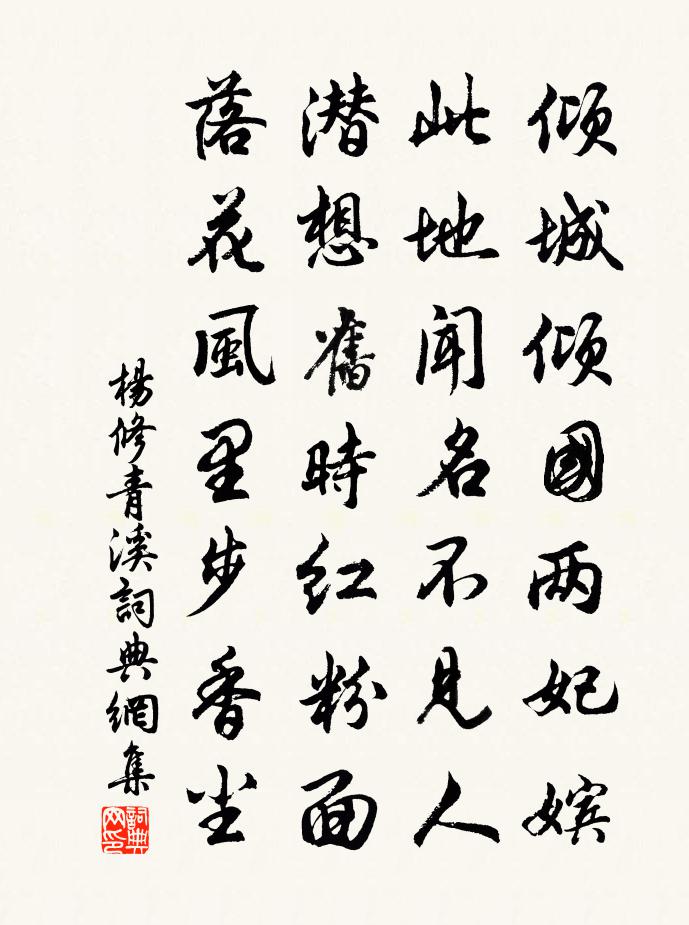 倾城倾國两妃嫔
此地闻名不見人
潜想舊時红粉面
落花風里步香尘
楊修青溪詞典網集
詞典
网印